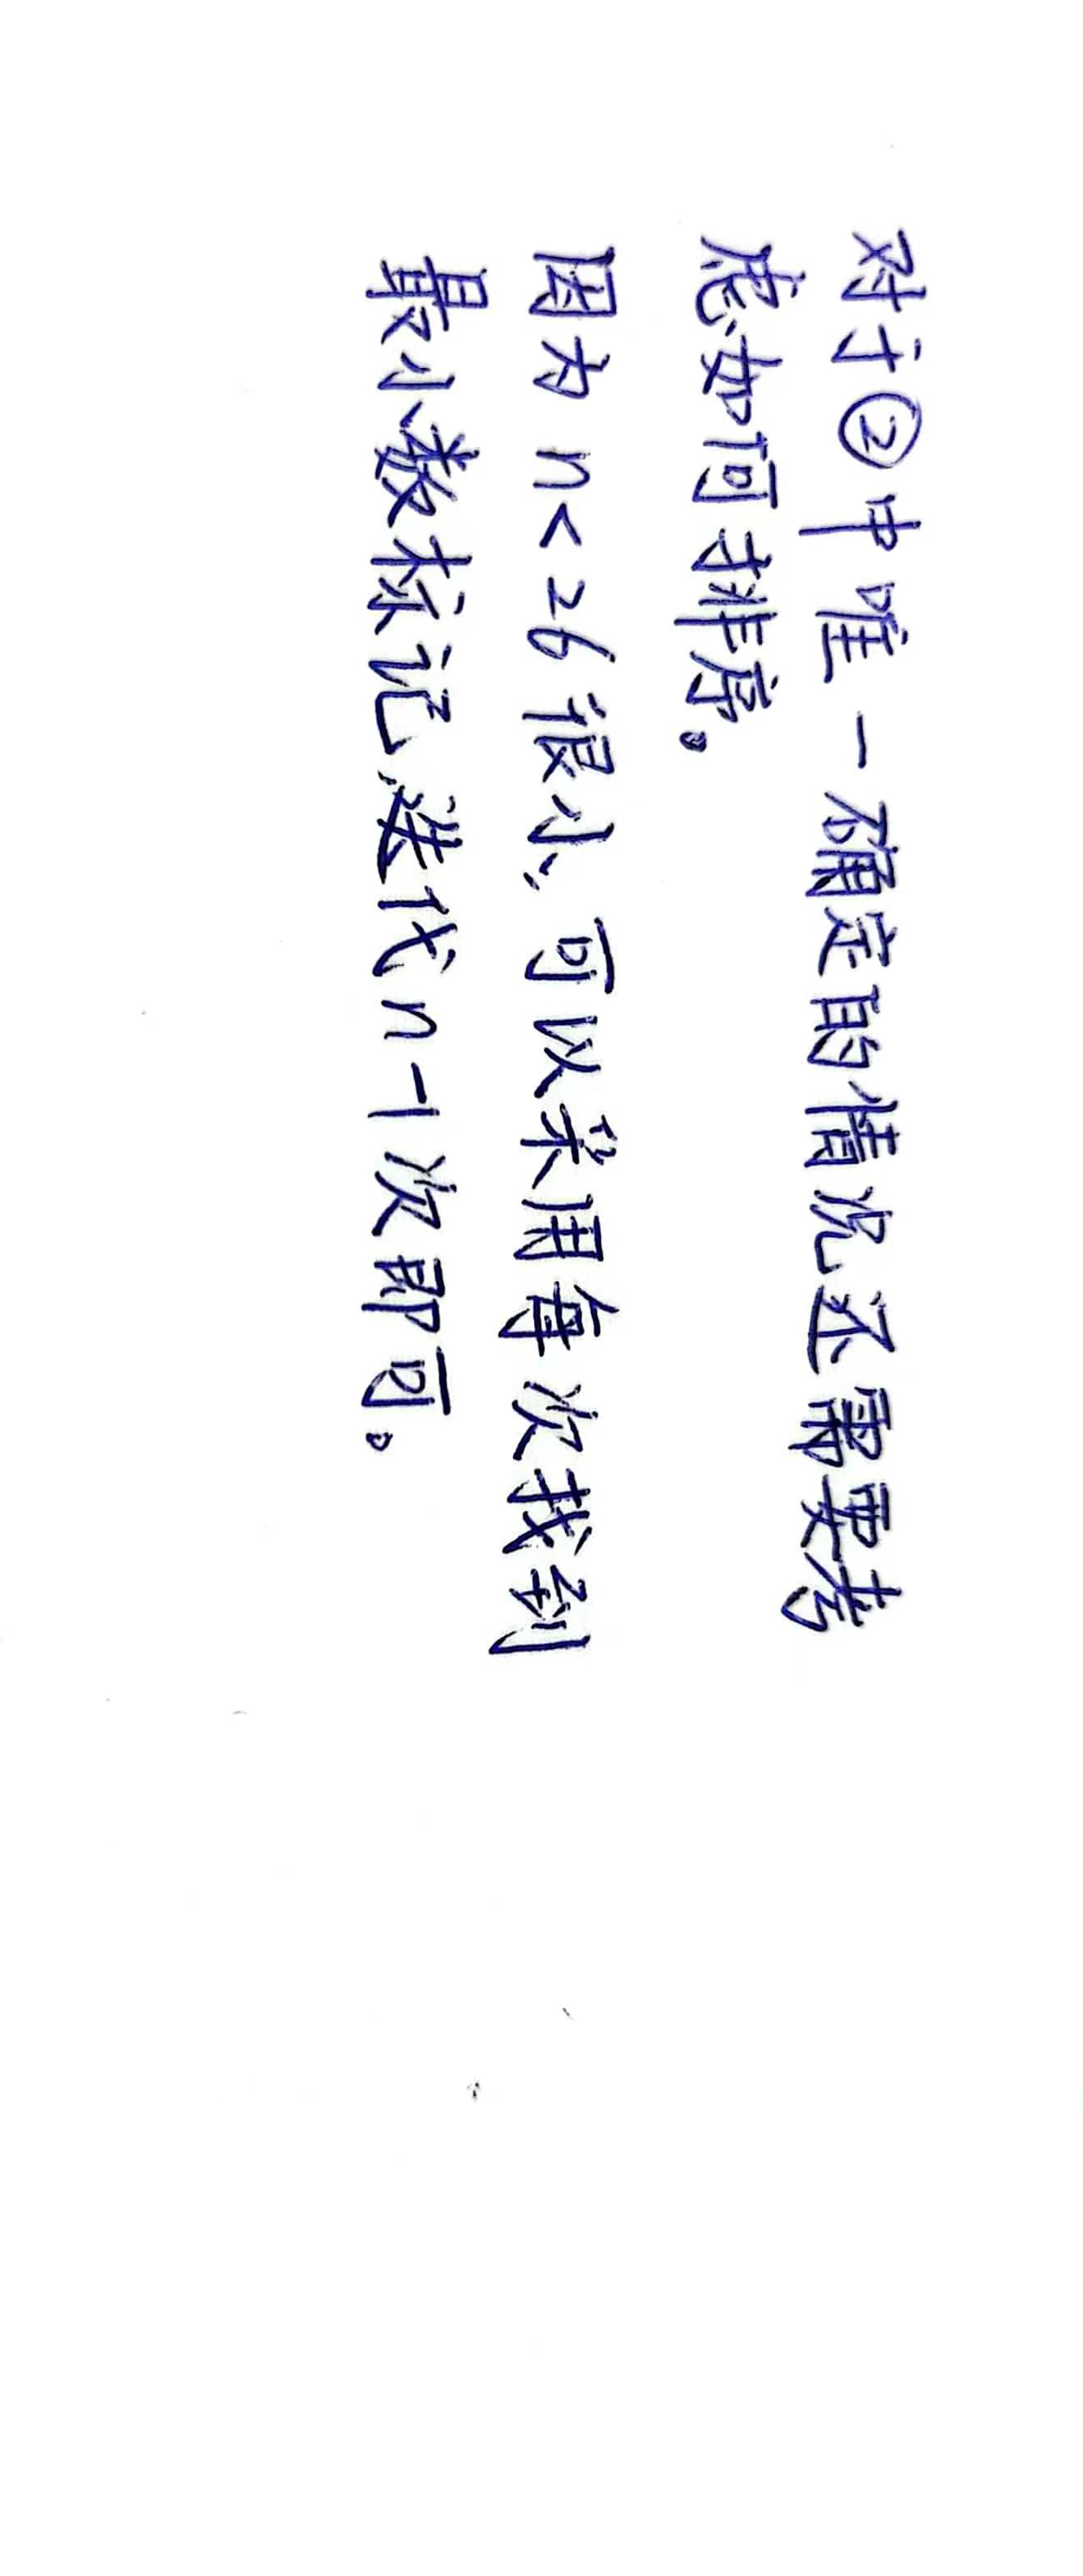 对于②中唯一确定的情况还需要考
虑如何排序。
因为 n<26 很小,可以采用每次找到
最小数标记,迭代n-1次即可。